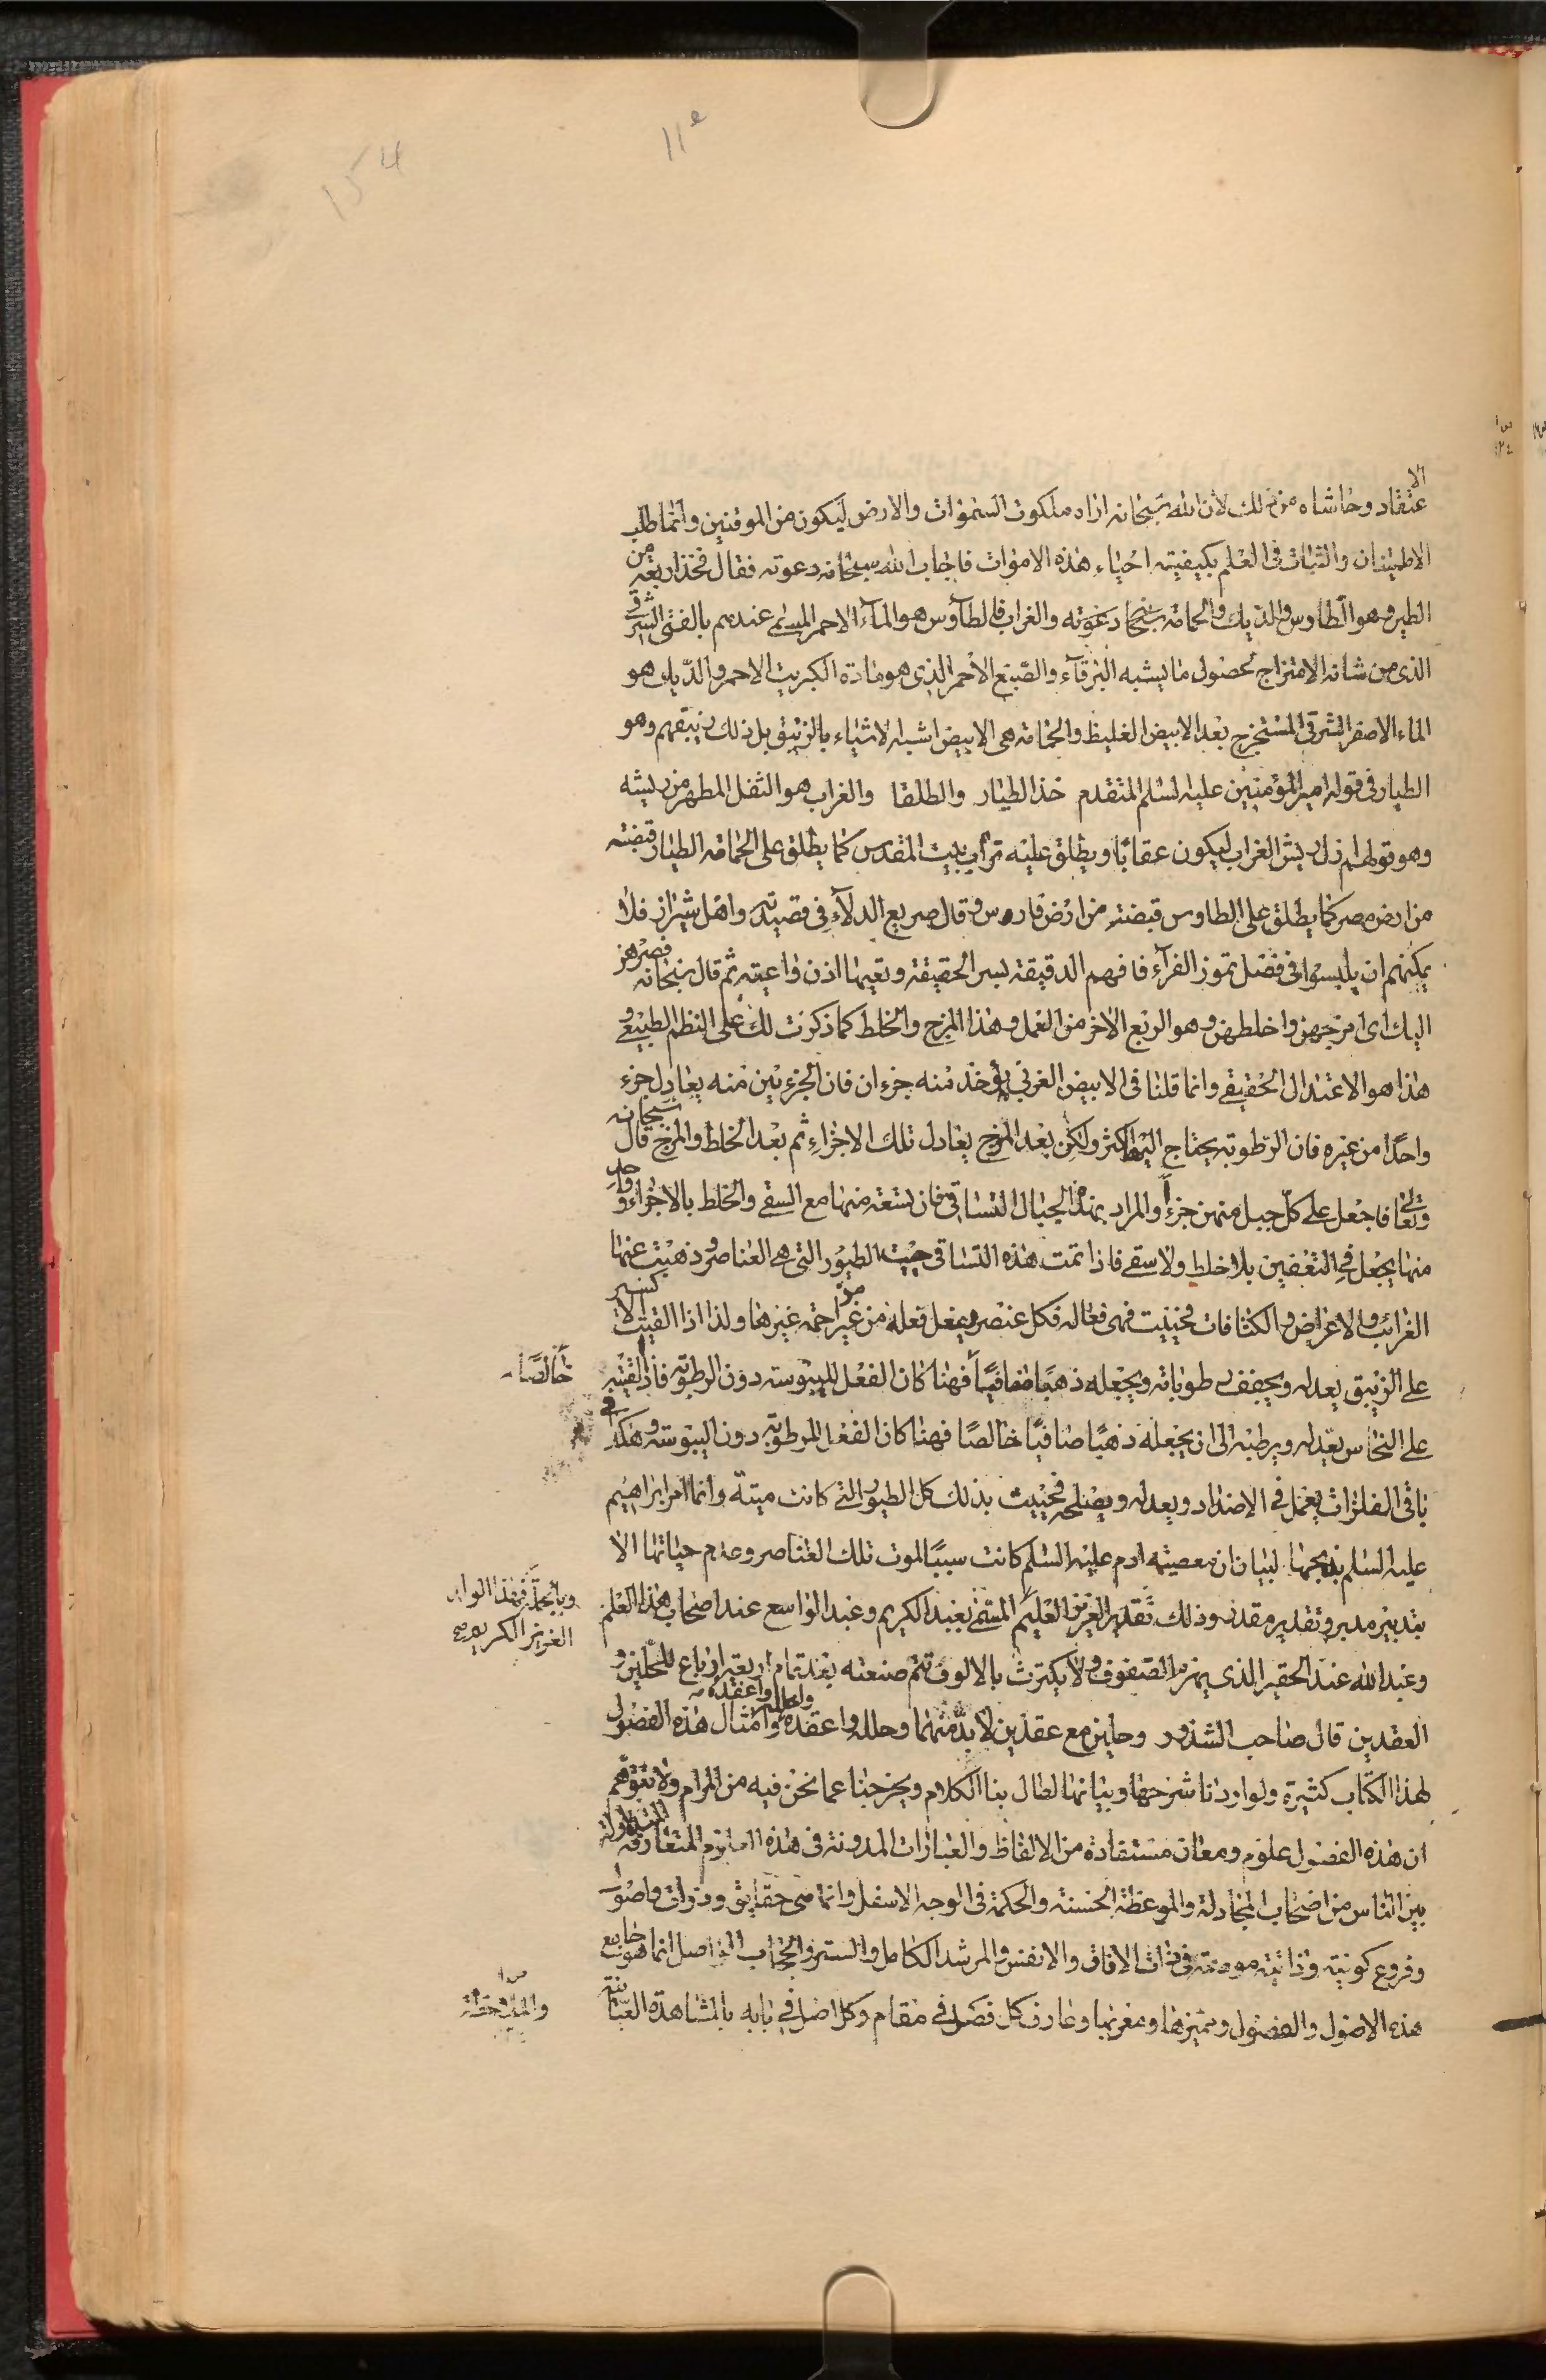 154
الا
عتقاد وحاشاه من ذلك لان الله سبحانه اراه ملكوت السموات والارض ليكون من الموقنين وانما طلب
الاطمينان والثبات فى العلم بكيفية احياء هذه الاموات فاجاب الله سبحانه دعوته فقال فخذ اربعة من
الطير وهو الطاوس والديك والحمامة والغراب فالطاوس هو المآء الاحمر المسمى عندهم بالفتى الشرقى
الذى من شانه الامتزاج لحصول ما يشبه البرقآء والصبغ الاحمر الذى هو مادة الكبريت الاحمر والديك هو
الماء الاصفر الشرقى المستخرج بعد الابيض الغليظ والحمامة هى الابيض اشبه الاشياء بالزيبق بل ذلك زيبقهم وهو
الطيار فى قوله امير المؤمنين عليه السلم المتقدم خذ الطيار والطلقا والغراب هو الثفل المطهر من ريشه
وهو قولهم ازل ريش الغراب ليكون عقابًا ويطلق عليه تراب بيت المقدس كما يطلق على الحمامة الطيار قبضة
من ارض مصر كما يطلق على الطاوس قبضة من ارض فارس وقال صريع الدلآء فى قصيدته واهل شيراز فلا
يمكنهم ان يلبسوا فى فصل تموز الفرآء فافهم الدقيقة لسر الحقيقة وتعيها اذن واعية ثم قال سبحانه فصرهن
اليك اى امزجهن واخلطهن وهو الربع الاخر من العمل وهذا المزج والخلط كما ذكرت لك على النظم الطبيعى و
هذا هو الاعتدال الحقيقى وانما قلنا فى الابيض الغربى يؤخذ منه جزءان فان الجزءين منه يعادل جزء
واحدًا من غيره فان الرطوبة يحتاج اليها اكثر ولكن بعد المزج يعادل تلك الاجزاء ثم بعد الخلط والمزج قال سبحانه
وتعالى فاجعل على كل جبل منهن جزءًا والمراد بهذه الجبال التساقى فان تسعة منها مع السقى والخلط بالاجزاء وواحد
منها يجعل فى التعفين بلا خلط ولاسقى فاذا تمت هذه التساقى حييت الطيور التى هى العناصر وذهبت عنها
الغرائب والاعراض والكثافات فحينئذ فهى فعاله فكل عنصر يفعل فعله من غير مزاحمة غيرها ولذا اذا القيت الاكسير
على الزيبق يعدله ويجفف رطوباته ويجعله ذهبًا صافيًا فهنا كان الفعل لليبوسة دون الرطوبة فاذا القيته
خالصًا
على النحاس يعدله ويرطبه الى ان يجعله ذهبًا صافيًا خالصًا فهنا كان الفعل للرطوبة دون اليبوسة وهكذا فى
باقى الفلزات يعمل فى الاضداد ويعدله ويصلحه فحييت بذلك كل الطيور التى كانت ميتة وانما امر ابراهيم
عليه السلم بذبحها لبيان ان معصية ادم عليه السلم كانت سببًا لموت تلك العناصر وعدم حياتها الا
بتدبير مدبر وتقدير مقدر وذلك تقدير العزيز العليم المسمى بعبد الكريم وعبد الواسع عند اصحاب هذا العلم
وبالجملة فهذا الوا
العزيز الكريم
وعبد الله عند الحقير الذى يهزم الصفوف ولا يكترث بالالوف تتم صنعته بعد تمام اربعة ارباع للحلين و
العقدين قال صاحب الشذور وحلين مع عقدين لا بد منهما وحلله واعقده وامثال هذه الفصول
لهذا الكتاب كثيرة ولو اردنا شرحها وبيانها لطال بنا الكلام ويخرجنا عما نحن فيه من المرام ولا تتوهم
ان هذه الفصول علوم ومعان مستفادة من الالفاظ والعبارات المدونة فى هذه المتعارفة المتداولة
بين الناس من اصحاب المجادلة والموعظة الحسنة والحكمة فى الوجه الاسفل وانما هى حقايق وذوات واصول
وفروع كونية وذاتية فى ذات الافاق والانفس والمرشد الكامل والستر والحجاب انما هو جامع
هذه الاصول والفصول ومميزها ومعربها وعارف كل فصل فى مقام وكل اصل فى بابه بالمشاهدة العيانية
والملاحظة